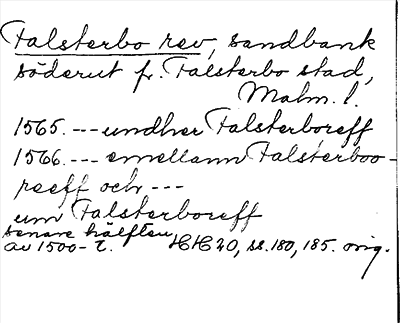 Falsterbo rev, sandbank
söderut fr. Falsterbo stad,
Malm. l.
1565. --- undher Falsterboreff
1566. --- emellann Falsterboo-
reeff och ---
um Falsterboreff
senare hälften
av 1500-t. HH 20, ss. 180, 185. orig.